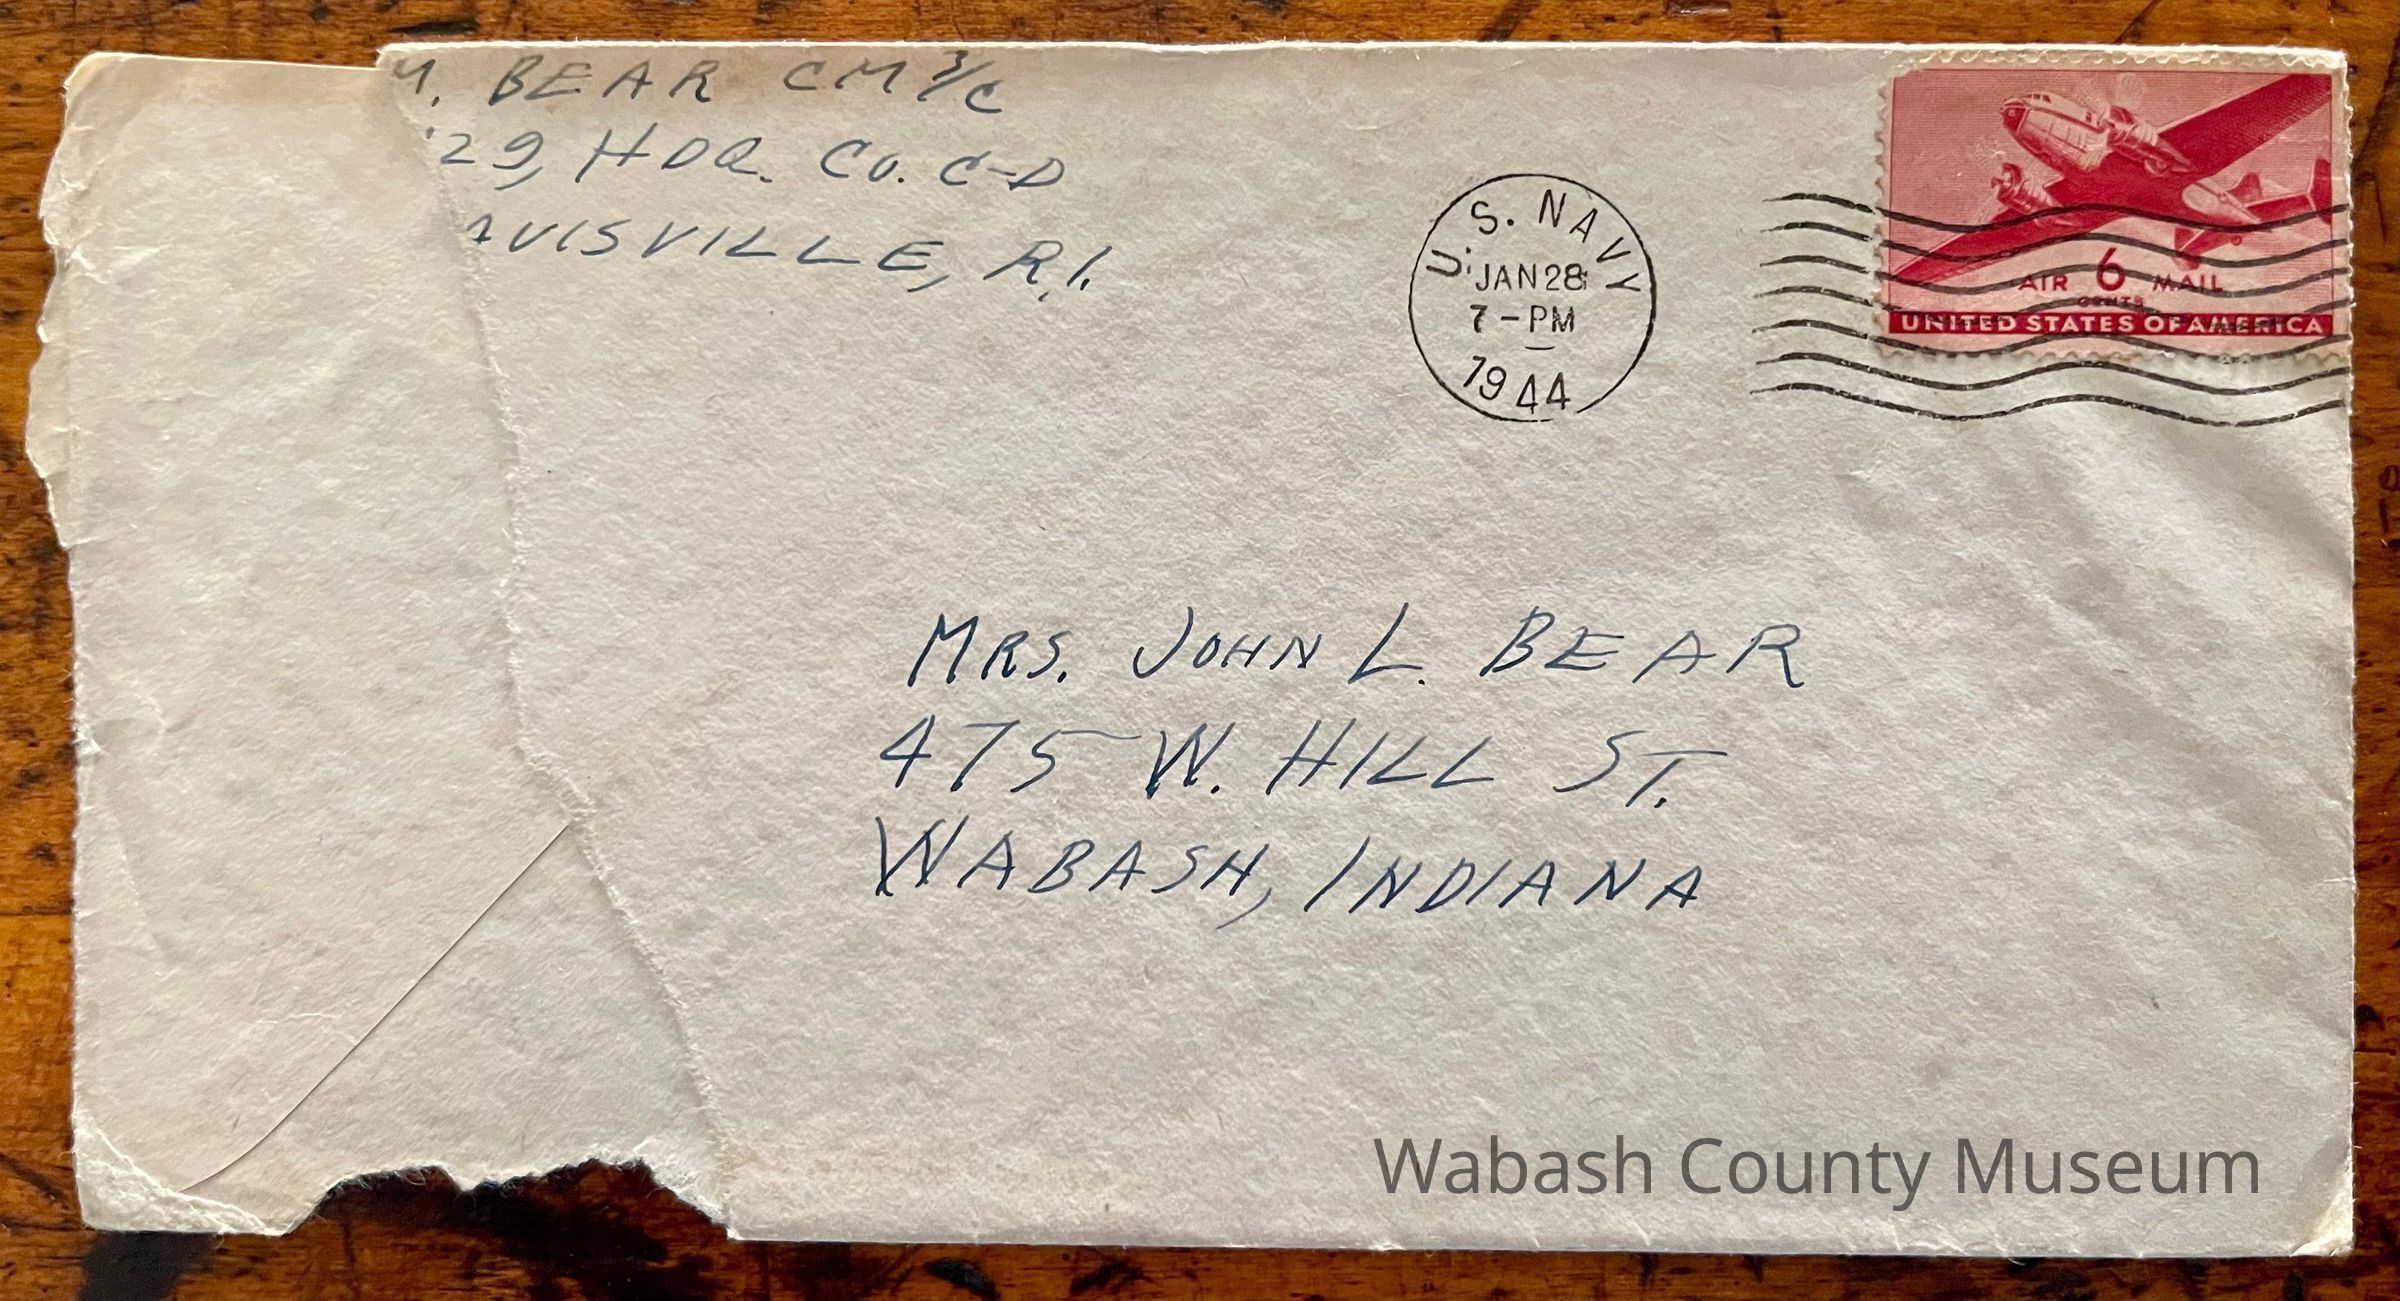 M. BEAR CM 3/C
29, HDQ. CO. C-D
AVISVILLE, R.I.
U.S. NAVY
JAN 28
7-PM
1944
AIR 6 MAIL
CENTS
UNITED STATES OF AMERICA
MRS. JOHN L. BEAR
475 W. HILL ST.
WABASH, INDIANA
Wabash County Museum